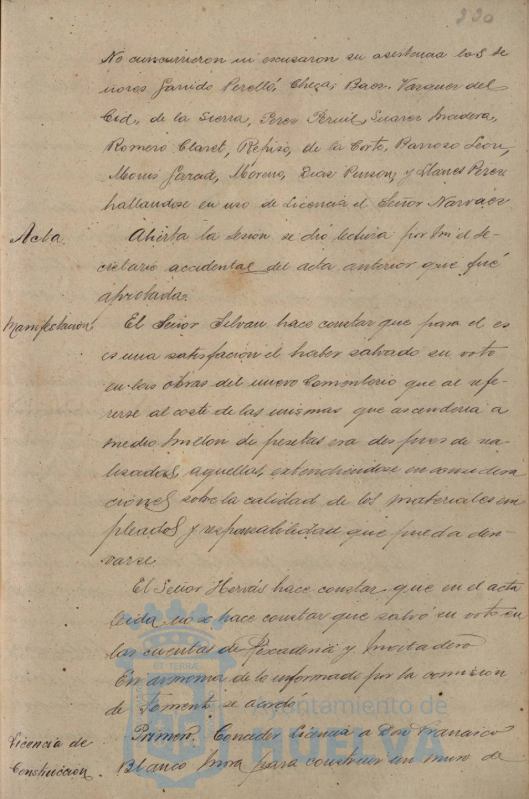 220
No concurrieron ni escusaron su asistencia los Se
ñores Garrido Perelló, Cheza, Baez, Vazquez del
Cid, de la Sierra, Perez Bruil, Suarez Madera,
Romero Claret, Rebizo, de la Corte, Barroso Leon,
Moris García, Moreno, Dias Punson, y Llanes Perez
hallandose en uso de Licencia el Señor Narváez
Acta.
Abierta la Sesion se dió lectura por mi el Se-
cretario accidental del acta anterior que fué
aprobada.
Manifestación
El Señor Silvan hace constar que para el es
es una satisfacion el haber salvado su voto
en las obras del nuevo Cementerio que al refe-
rirse al coste de las mismas que ascenderia a
medio millon de pesetas era despues de rea-
lizadas, aquellas, extendiéndose en considera
ciones sobre la calidad de los materiales em
pleados y responsabilidad que pueda deri-
varse
El Señor Hervás hace constar que en el acta
leida no se hace constar que salvó su voto en
las cuentas de Pescaderia y Matadero
En armonia de lo informado por la comision
de Fomento se acordó
Licencia de
Construccion
Primero. Conceder Licencia a Don Francisco
Blanco Mora para construir un muro de
ET TERRA
Ayuntamiento de
HUELVA